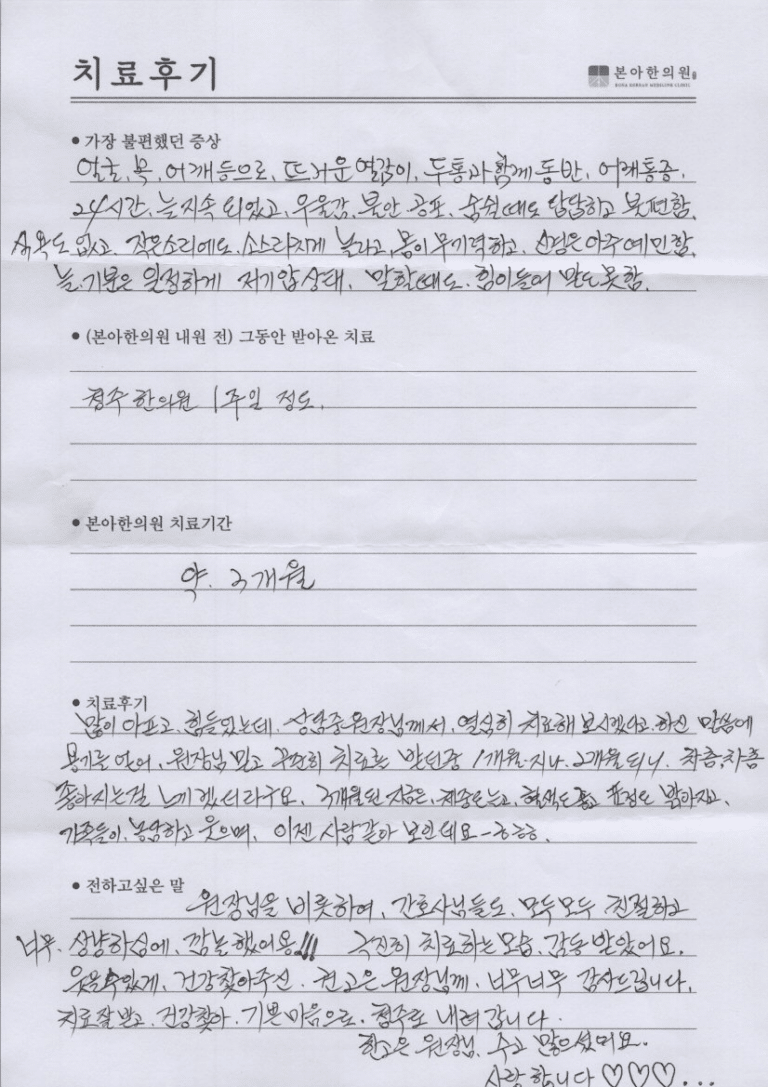 치료후기
본아한의원
BONA KOREAN MEDICINE CLINIC
• 가장 불편했던 증상
얼굴, 목, 어깨등으로, 뜨거운 열감이, 두통과 함께 동반, 어깨통증,
24시간, 늘지속 되었고, 우울감, 불안 공포, 숨쉴때도 답답하고 불편함,
식욕도 없고, 작은소리에도, 소스라치게 놀라고, 몸이 무기력하고, 신경은 아주예민함,
늘, 기분은 일정하게 저기압상태, 말할때도, 힘이들어 말도못함,
• (본아한의원 내원 전) 그동안 받아온 치료
청주 한의원 1주일 정도,
• 본아한의원 치료기간
약. 3개월
• 치료후기
많이 아프고, 힘들었는데, 상담중 원장님께서, 열심히 치료해 보시겠다고, 하신 말씀에
용기를 얻어, 원장님 믿고 꾸준히 치료를 받던중 1개월 지나, 2개월되니, 차츰, 차츰
좋아지는걸 느끼겠더라구요, 3개월된 지금은, 체중도 늘고, 혈색도 좋고 표정도 밝아지고,
가족들이, 농담하고 웃으며, 이젠 사람같아 보인데요-ㅎㅎㅎ,
• 전하고싶은 말
원장님을 비롯하여, 간호사님들도, 모두모두 친절하고
너무, 상냥하심에, 깜놀했어용!!! 극진히 치료하는모습, 감동 받았어요,
웃을수있게, 건강찾아주신, 원장님께, 너무너무 감사드립니다,
치료잘받고, 건강찾아, 기쁜마음으로, 청주로 내려갑니다.
원장님, 수고 많으셨어요.
사랑합니다 ♡♡♡...